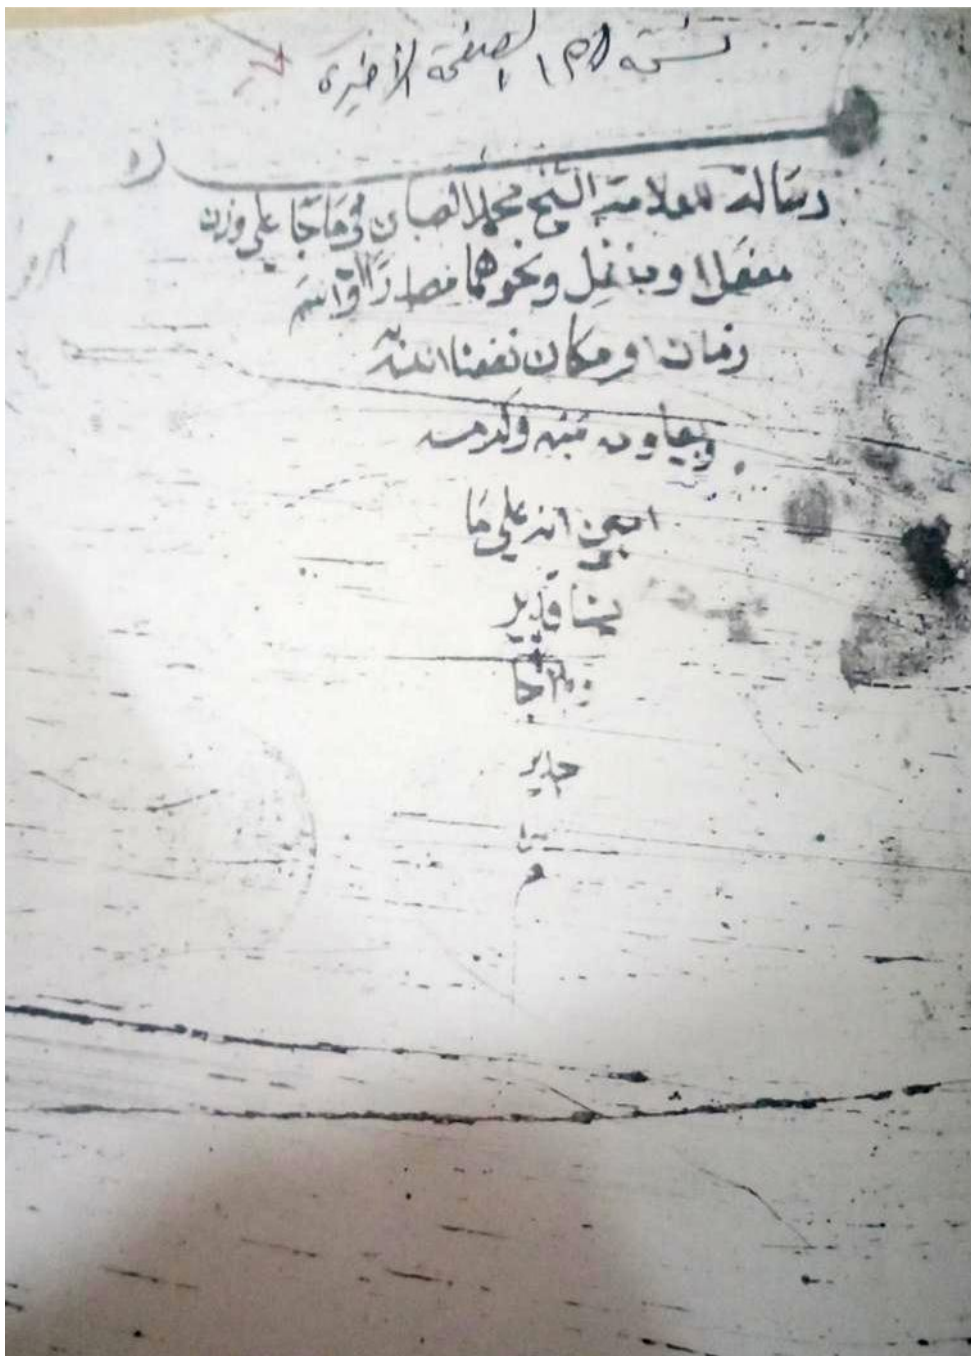 نسخة الصفحة الأخيرة
رسالة للعلامة الشيخ محمد الصبان في ما جا على وزن
مفعل او مفعل ونحوهما مصادرا او اسم
زمان او مكان نفعنا الله
به وبعلومه بمنه وكرمه
امين انه على ما
يشا قدير
وبالاجا
جدير
تا
م